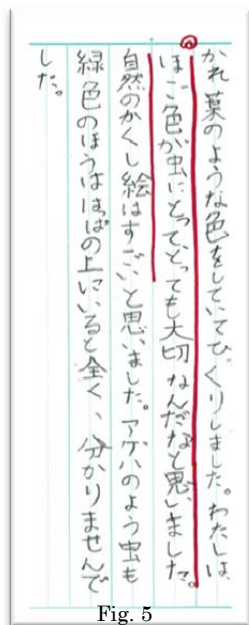 かれ葉のような色をしていてびっくりしました。わたしは、
ほご色が虫にとって、とっても大切なんだなと思いました。
自然のかくし絵はすごいと思いました。アゲハのよう虫も
緑色のほうははっぱの上にいると全く、分かりませんで
した。
Fig. 5